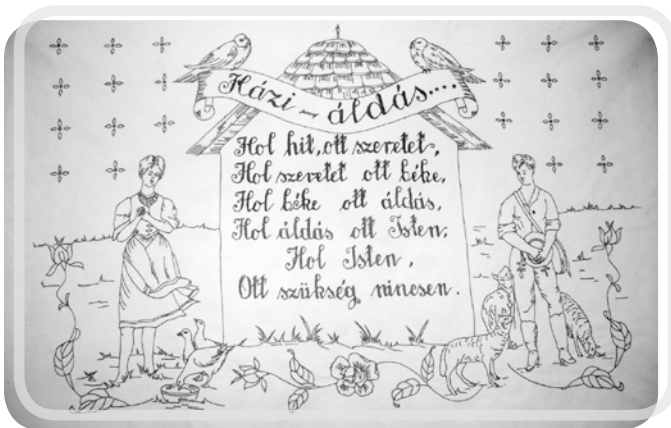 Házi-áldás....
Hol hit, ott szeretet,
Hol szeretet ott béke,
Hol béke ott áldás,
Hol áldás ott Isten,
Hol Isten,
Ott szükség nincsen.